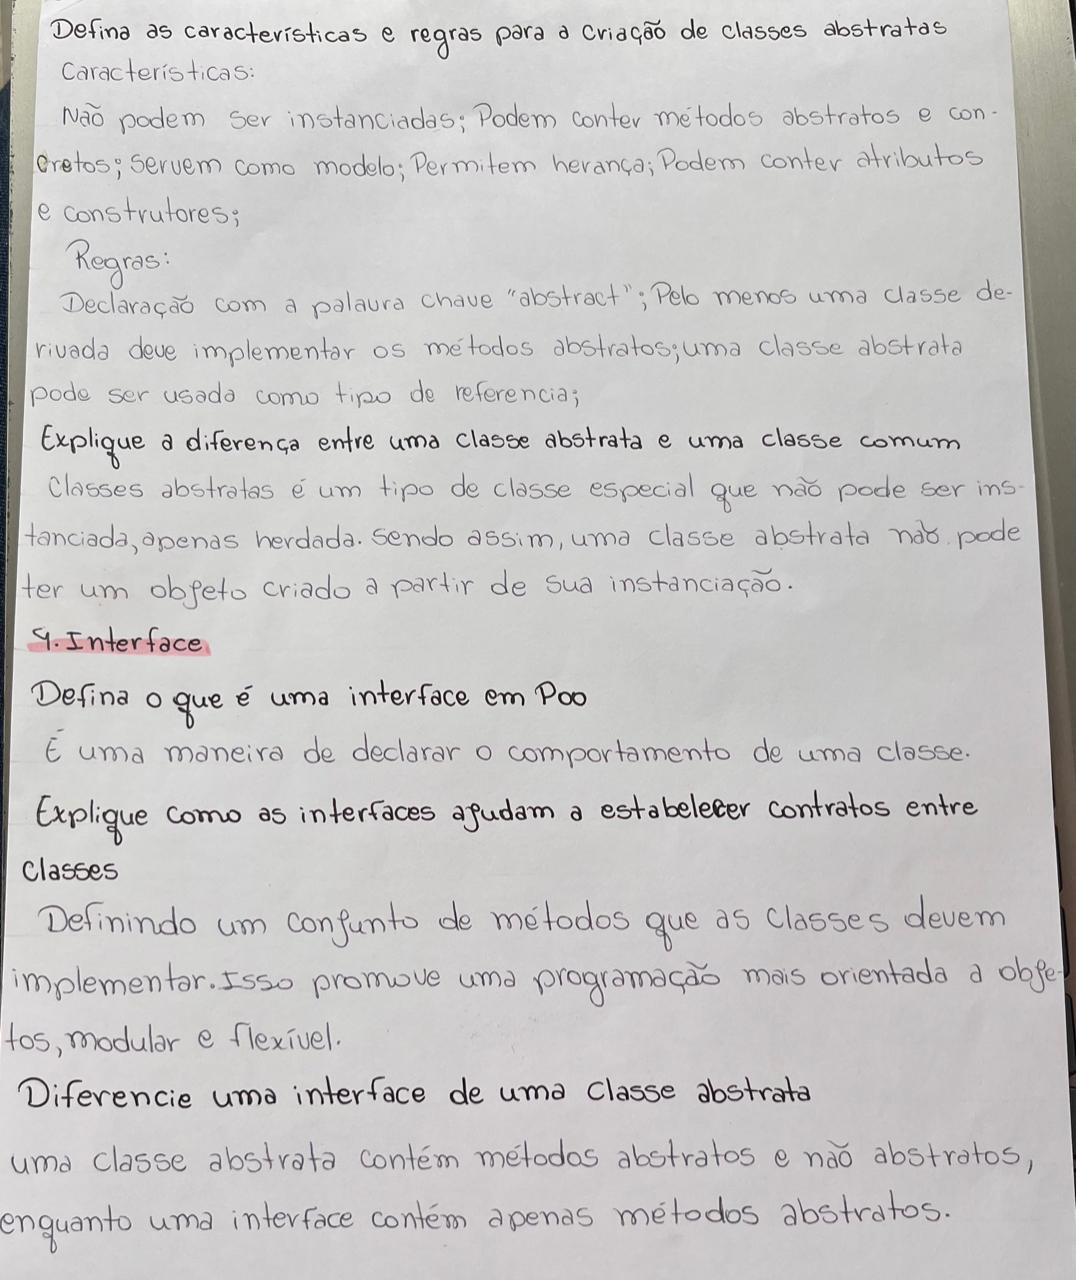 Defina as características e regras para a criação de classes abstratas
Características:
Não podem ser instanciadas; Podem conter métodos abstratos e con-
cretos; servem como modelo; Permitem herança; Podem conter atributos
e construtores;
Regras:
Declaração com a palavra chave "abstract"; Pelo menos uma classe de-
rivada deve implementar os métodos abstratos; uma classe abstrata
pode ser usada como tipo de referencia;
Explique a diferença entre uma classe abstrata e uma classe comum
Classes abstratas é um tipo de classe especial que não pode ser ins-
tanciada, apenas herdada. Sendo assim, uma classe abstrata não pode
ter um objeto criado a partir de sua instanciação.
9. Interface
Defina o que é uma interface em Poo
É uma maneira de declarar o comportamento de uma classe.
Explique como as interfaces ajudam a estabelecer contratos entre
classes
Definindo um conjunto de métodos que as classes devem
implementar. Isso promove uma programação mais orientada a obje-
tos, modular e flexível.
Diferencie uma interface de uma classe abstrata
uma classe abstrata contém métodos abstratos e não abstratos,
enquanto uma interface contém apenas métodos abstratos.